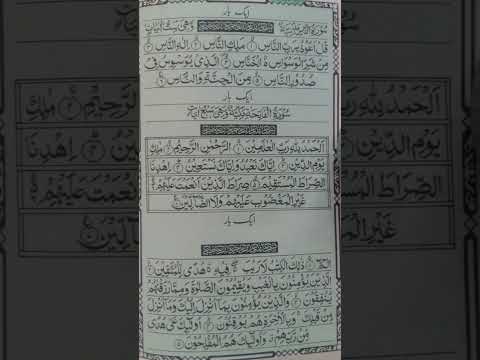 ایک بار
سُوْرَةُ النَّاسِ مَدَنِيَّةٌ وَهِيَ سِتُّ اٰيَاتٍ
قُلْ اَعُوْذُ بِرَبِّ النَّاسِ ۙ مَلِكِ النَّاسِ ۙ اِلٰهِ النَّاسِ ۙ
مِنْ شَرِّ الْوَسْوَاسِ ۙ الْخَنَّاسِ ۙ الَّذِىْ يُوَسْوِسُ فِىْ
صُدُوْرِ النَّاسِ ۙ مِنَ الْجِنَّةِ وَالنَّاسِ
ایک بار
سُوْرَةُ الْفَاتِحَةِ مَكِّيَّةٌ وَهِيَ سَبْعُ اٰيَاتٍ
اَلْحَمْدُ لِلّٰهِ رَبِّ الْعٰلَمِيْنَ ۙ الرَّحْمٰنِ الرَّحِيْمِ ۙ مٰلِكِ
يَوْمِ الدِّيْنِ ؕ اِيَّاكَ نَعْبُدُ وَاِيَّاكَ نَسْتَعِيْنُ ؕ اِهْدِنَا
الصِّرَاطَ الْمُسْتَقِيْمَ ۙ صِرَاطَ الَّذِيْنَ اَنْعَمْتَ عَلَيْهِمْ ۙ
غَيْرِ الْمَغْضُوْبِ عَلَيْهِمْ وَلَا الضَّآلِّيْنَ
ایک بار
الٓمّٓ ۚ ذٰلِكَ الْكِتٰبُ لَا رَيْبَ ۛ فِيْهِ ۛ هُدًى لِّلْمُتَّقِيْنَ ۙ
الَّذِيْنَ يُؤْمِنُوْنَ بِالْغَيْبِ وَيُقِيْمُوْنَ الصَّلٰوةَ وَمِمَّا رَزَقْنٰهُمْ
يُنْفِقُوْنَ ۙ وَالَّذِيْنَ يُؤْمِنُوْنَ بِمَآ اُنْزِلَ اِلَيْكَ وَمَآ اُنْزِلَ
مِنْ قَبْلِكَ ۚ وَبِالْاٰخِرَةِ هُمْ يُوْقِنُوْنَ ؕ اُولٰٓئِكَ عَلٰى هُدًى
مِّنْ رَّبِّهِمْ ۗ وَاُولٰٓئِكَ هُمُ الْمُفْلِحُوْنَ